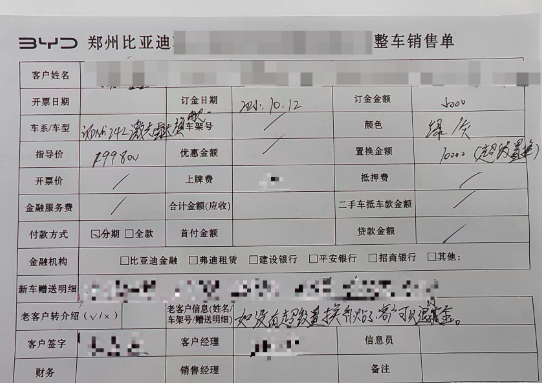 BYD 郑州比亚迪 整车销售单
客户姓名
开票日期 订金日期 10.12 订金金额 5000
车系/车型 车架号 颜色
指导价 199800 优惠金额 置换金额 10000
开票价 上牌费 抵押费
金融服务费 合计金额(应收) 二手车抵车款金额
付款方式 ☑分期 □全款 首付金额 贷款金额
金融机构 □比亚迪金融 □弗迪租赁 □建设银行 □平安银行 □招商银行 □其他:
新车赠送明细
老客户转介绍(√/×) 老客户信息(姓名/
车架号/赠送明细)
客户签字 客户经理 信息员
财务 销售经理 备注